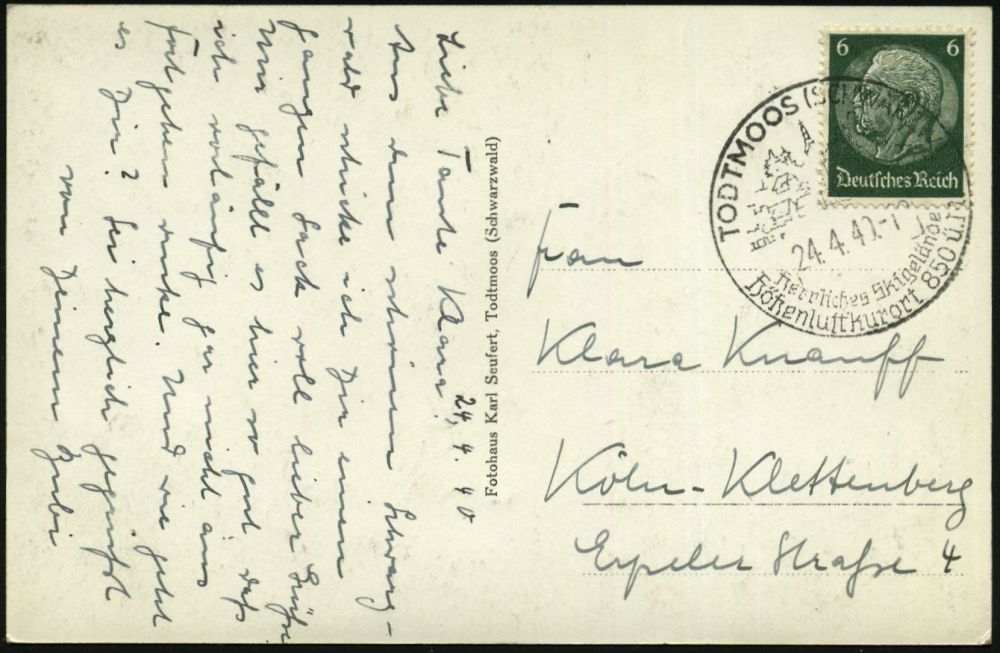 24. 4. 40
Liebe Tante Klara!
Aus dem schönen Schwarz-
wald schicke ich Dir einen
ganzen Sack voll lieber Grüße
Mir gefällt es hier so gut daß
ich vorläufig gar nicht ans
Fortgehen denke. Und wie geht
es Dir? Sei herzlich gegrüßt
von Deinem
Fotohaus Karl Seufert, Todtmoos (Schwarzwald)
6 6
Deutsches Reich
TODTMOOS (SCHWARZW
24.4.40
Herrliches Skigelände
Höhenluftkurort 850 ü
Frau
Klara Knauff
Köln-Klettenberg
Erpeler Straße 4